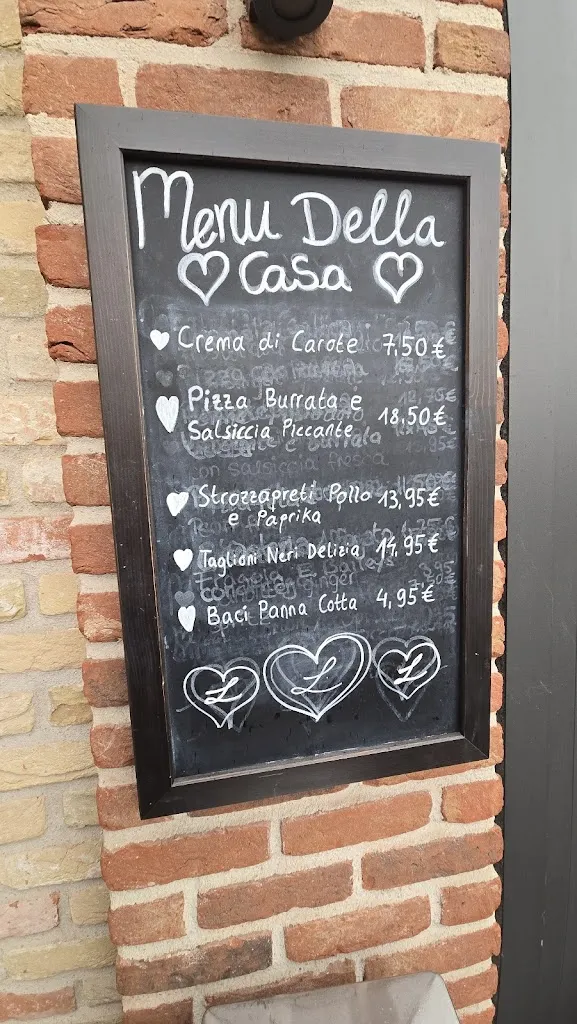 Menu Della
Casa
Crema di Carote 7,50€
Pizza Burrata e
Salsiccia Piccante 18,50€
Strozzapreti Pollo 13,95€
e Paprika
Tagliani Neri Delizia 14,95€
Baci Panna Cotta 4,95€
L L L